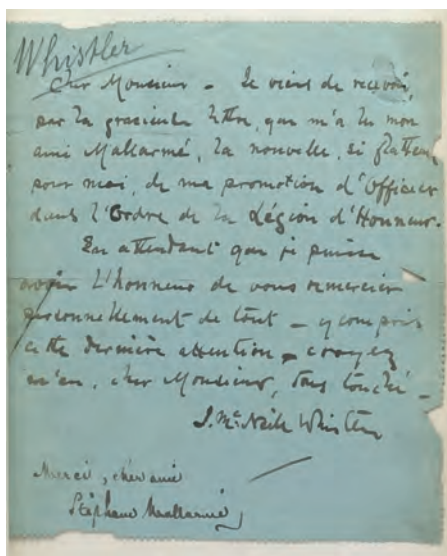 Whistler
Cher Monsieur – Je viens de recevoir,
par la gracieuse lettre, que m'a lu mon
ami Mallarmé, la nouvelle, si flatteuse
pour moi, de ma promotion d'Officier
dans l'Ordre de la Légion d'Honneur.
En attendant que je puisse
avoir l'honneur de vous remercier
personnellement de tout – y compris
cette dernière attention – croyez
m'en, cher Monsieur, touché –
J. McNeill Whistler
Merci, cher ami
Stéphane Mallarmé